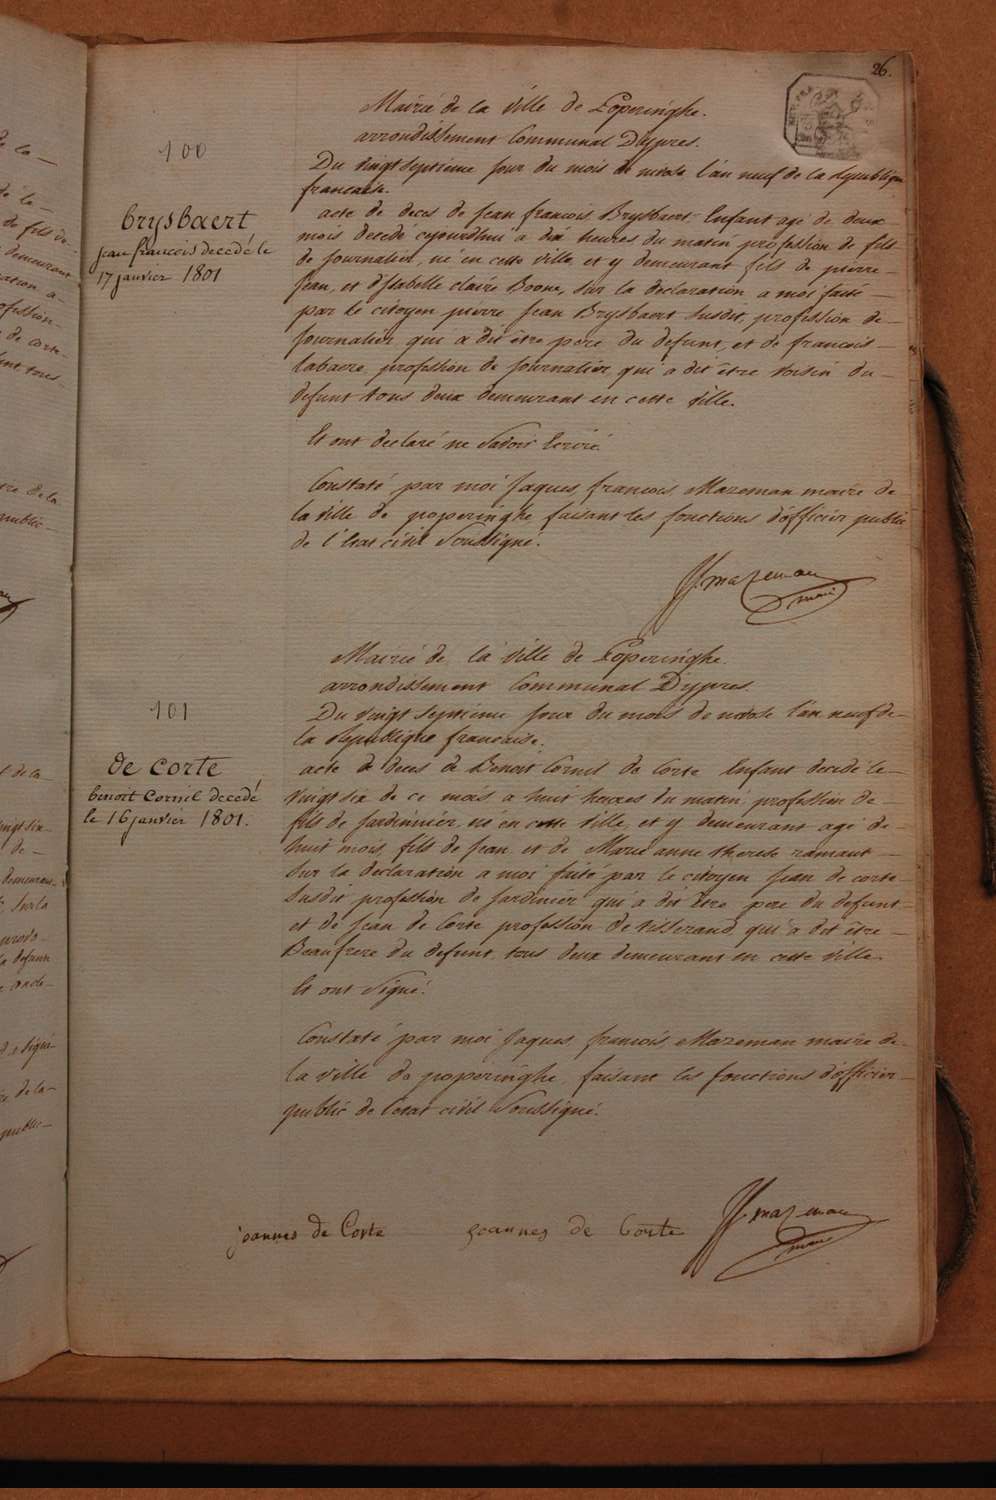 26.
Mairié de la Ville de Poperinghe.
arrondissement Communal D'ypres.
100
Du vingt septieme jour du mois de nivose l'an neuf de la republique
francaise.
brysbaert
jean francois decedé le
17 janvier 1801
acte de deces de jean francois Brysbaert Enfant agé de deux
mois decedé cejourdhui a dix heures du matin profession de fils
de journalier, né en cette ville et y demeurant fils de pierre
jean, et d'Isabelle claire Boone, sur la declaration a moi faite
par le citoyen pierre jean Brysbaert susdit, profession de
journalier qui a dit être pere du defunt, et de francois
labaere profession de journalier, qui a dit être voisin du
defunt tous deux demeurant en cette ville.
Et ont declaré ne savoir Ecrire.
Constaté par moi jaques francois Mazeman maire de
la ville de poperinghe faisant les fonctions d'officier public
de l'Etat civil soussigné.
JJ. mazeman
maire
Mairié de la Ville de Poperinghe.
arrondissement Communal D'ypres.
101
Du vingt septieme jour du mois de nivose l'an neuf de
la republique francaise.
de corte
benoit Cornil decedé
le 16 janvier 1801.
acte de deces de Benoit Cornil de Corte Enfant decedé le
vingt six de ce mois a huit heures du matin profession de
fils de jardinnier, né en cette ville, et y demeurant agé de
huit mois, fils de jean et de Marie anne therese ramaut
sur la declaration a moi faite par le citoyen jean de corte
susdit profession de jardinier qui a dit être pere du defunt
et de jean de Corte profession de tisserand, qui a dit être
Beaufrere du defunt, tous deux demeurant en cette ville
Et ont signé.
Constaté par moi jaques francois Mazeman maire de
la ville de poperinghe, faisant les fonctions d'officier
public de l'etat civil soussigné.
joannes de Corte joannes de Corte JJ. mazeman
maire